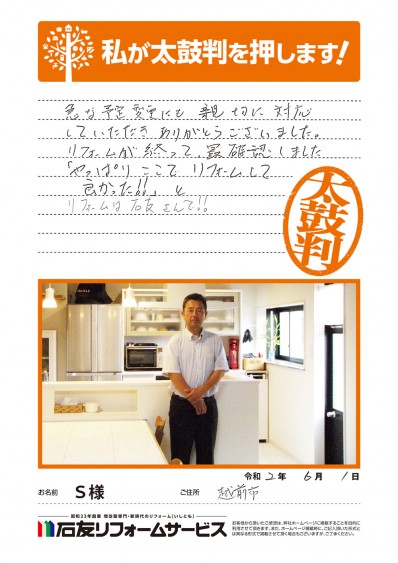 私が太鼓判を押します!
急な予定変更にも 親切に 対応
していただき ありがとうございました。
リフォームが 終って、再確認しました
「やっぱり ここで リフォームして
良かった!!」と
リフォームは 石友さんで!!
太鼓判
令和 2年 6月 1日
お名前 S様 ご住所 越前市
石友リフォームサービス